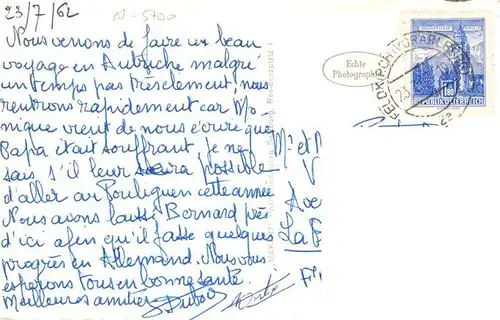 23/7/62
Nous venons de faire un beau
voyage en Autriche malgré
un temps pas très clément; nous
rentrons rapidement car Mo-
nique vient de nous écrire que
Papa était souffrant, je ne
sais s'il leur sera possible
d'aller au Pouliguen cette année
Nous avons laissé Bernard près
d'ici afin qu'il fasse quelques
progrès en Allemand. Nous vous
espérons tous en bonne santé.
Meilleures amitiés
Echte
Photographie
FELDKIRCH VORARLBERG
REPUBLIK ÖSTERREICH
M. et
V
Ave
La